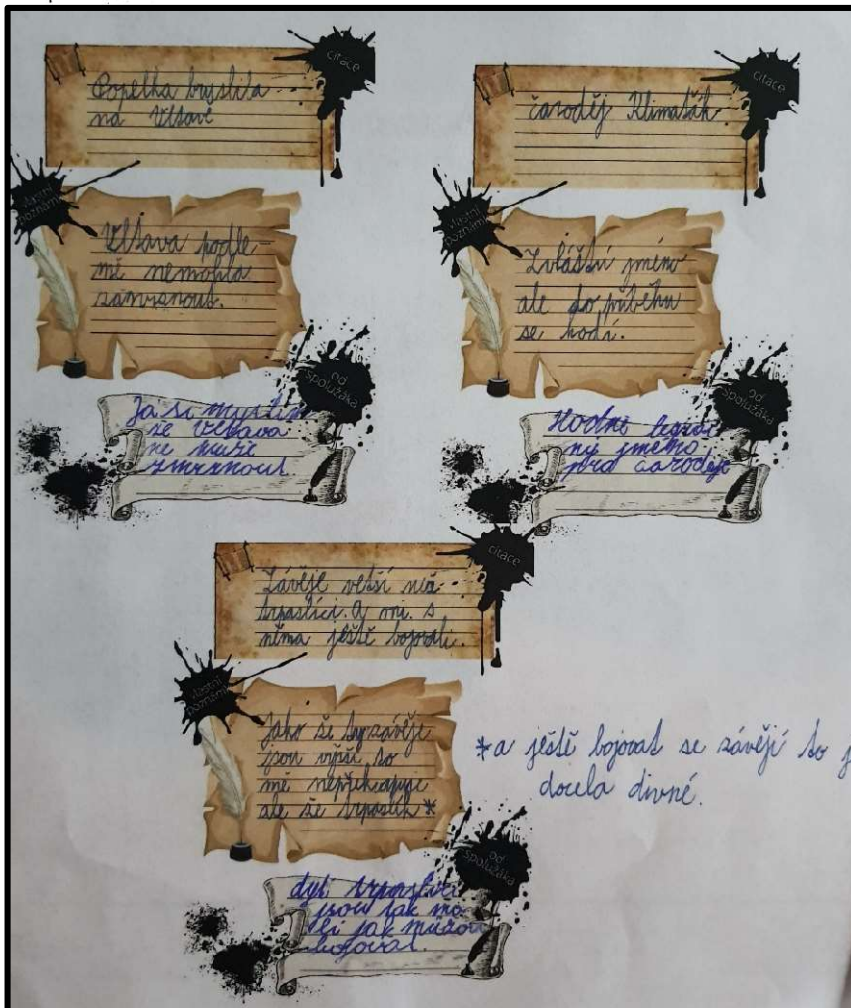 citace
Popelka bruslila
na Vltavě
vlastní
poznámka
Vltava podle
mě nemohla
zamrznout.
od
spolužáka
Ja si myslim
že Vltava
ne může
zmrznout
citace
čaroděj Klimaťák.
vlastní
poznámka
Zvláštní jméno
ale do příběhu
se hodí.
od
spolužáka
Hodně
ný jméno
pro čaroděje
citace
Závěje vetší než
trpaslíci. A oni. s
něma ještě bojovali.
vlastní
poznámka
Jako že ty závěje
jsou vyšší to
mě nepřekvapuje
ale že trpaslík *
* a ještě bojovat se závějí to j
docela divné.
od
spolužáka
dyť trpaslici
jsou tak ma
lí jak můžou
bojovat.